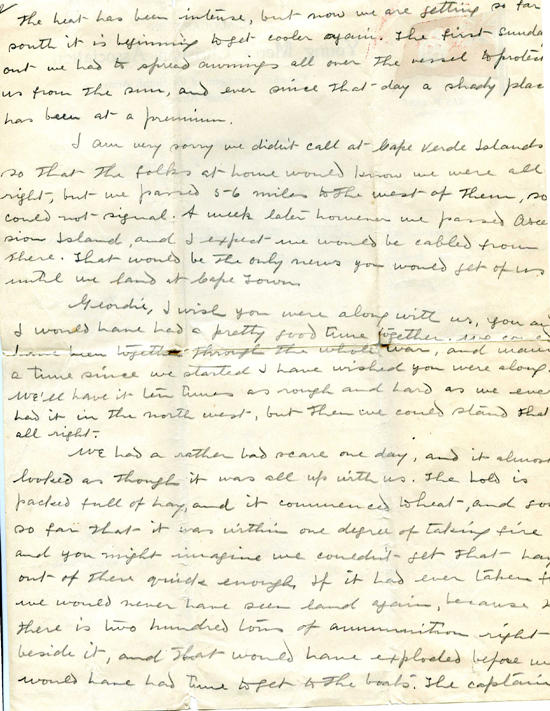 The heat has been intense, but now we are getting so far
south it is beginning to get cooler again. The first Sunda
out we had to spread awnings all over the vessel to protect
us from the sun, and ever since that day a shady plac
has been at a premium.
I am very sorry we didn't call at Cape Verde Islands
so that the folks at home would know we were all
right, but we passed 5-6 miles to the west of them, so
could not signal. A week later however we passed Asce
sion Island, and I expect we would be cabled from
there. That would be the only news you would get of us
until we land at Cape Town.
Geordie, I wish you were along with us, you an
I would have had a pretty good time together.
have been together through the whole war, and many
a time since we started I have wished you were along.
We'll have it ten times as rough and hard as we eve
had it in the north west, but then we could stand that
all right.
We had a rather bad scare one day, and it almost
looked as though it was all up with us. The hold is
packed full of hay, and it commenced to heat, and got
so far that it was within one degree of taking fire
and you might imagine we couldn't get that hay
out of there quick enough. If it had ever taken f
we would never have seen land again, because
there is two hundred tons of ammunition right
beside it, and that would have exploded before we
would have had time to get to the boats. The captain